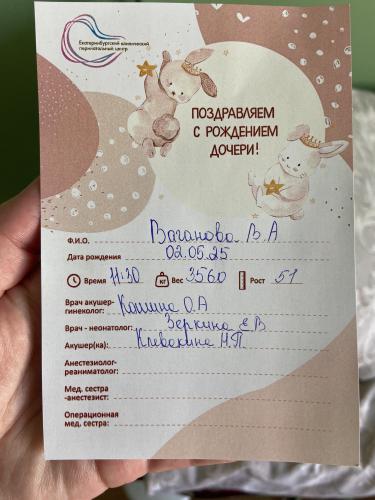 Екатеринбургский клинический
перинатальный центр
ПОЗДРАВЛЯЕМ
С РОЖДЕНИЕМ
ДОЧЕРИ!
Ф.И.О. Ваганова В.А
Дата рождения 02.05.25
Время 11:30 Вес 3560 Рост 51
Врач акушер-
гинеколог: Конина О.А
Врач - неонатолог: Зеркина Е В
Акушер(ка): Клевакина Н.П
Анестезиолог-
реаниматолог:
Мед. сестра
-анестезист:
Операционная
мед. сестра: